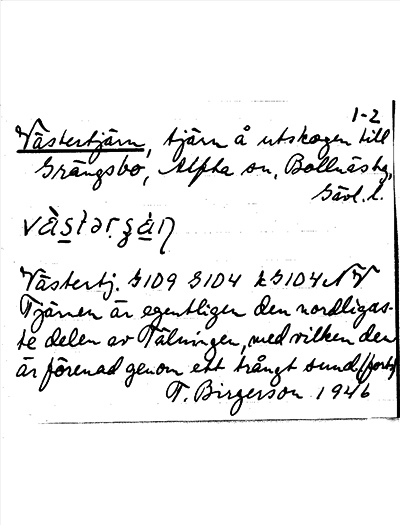 1-2
Västertjärn, tjärn å utskogen till
Grängsbo, Alfta sn, Bollnästg,
Gävl. l.
Västertj. G109 G104 k G104 NV
Tjärnen är egentligen den nordligas-
te delen av Tälningen, med vilken den
är förenad genom ett trångt sund (forts)
T. Birgerson 1946